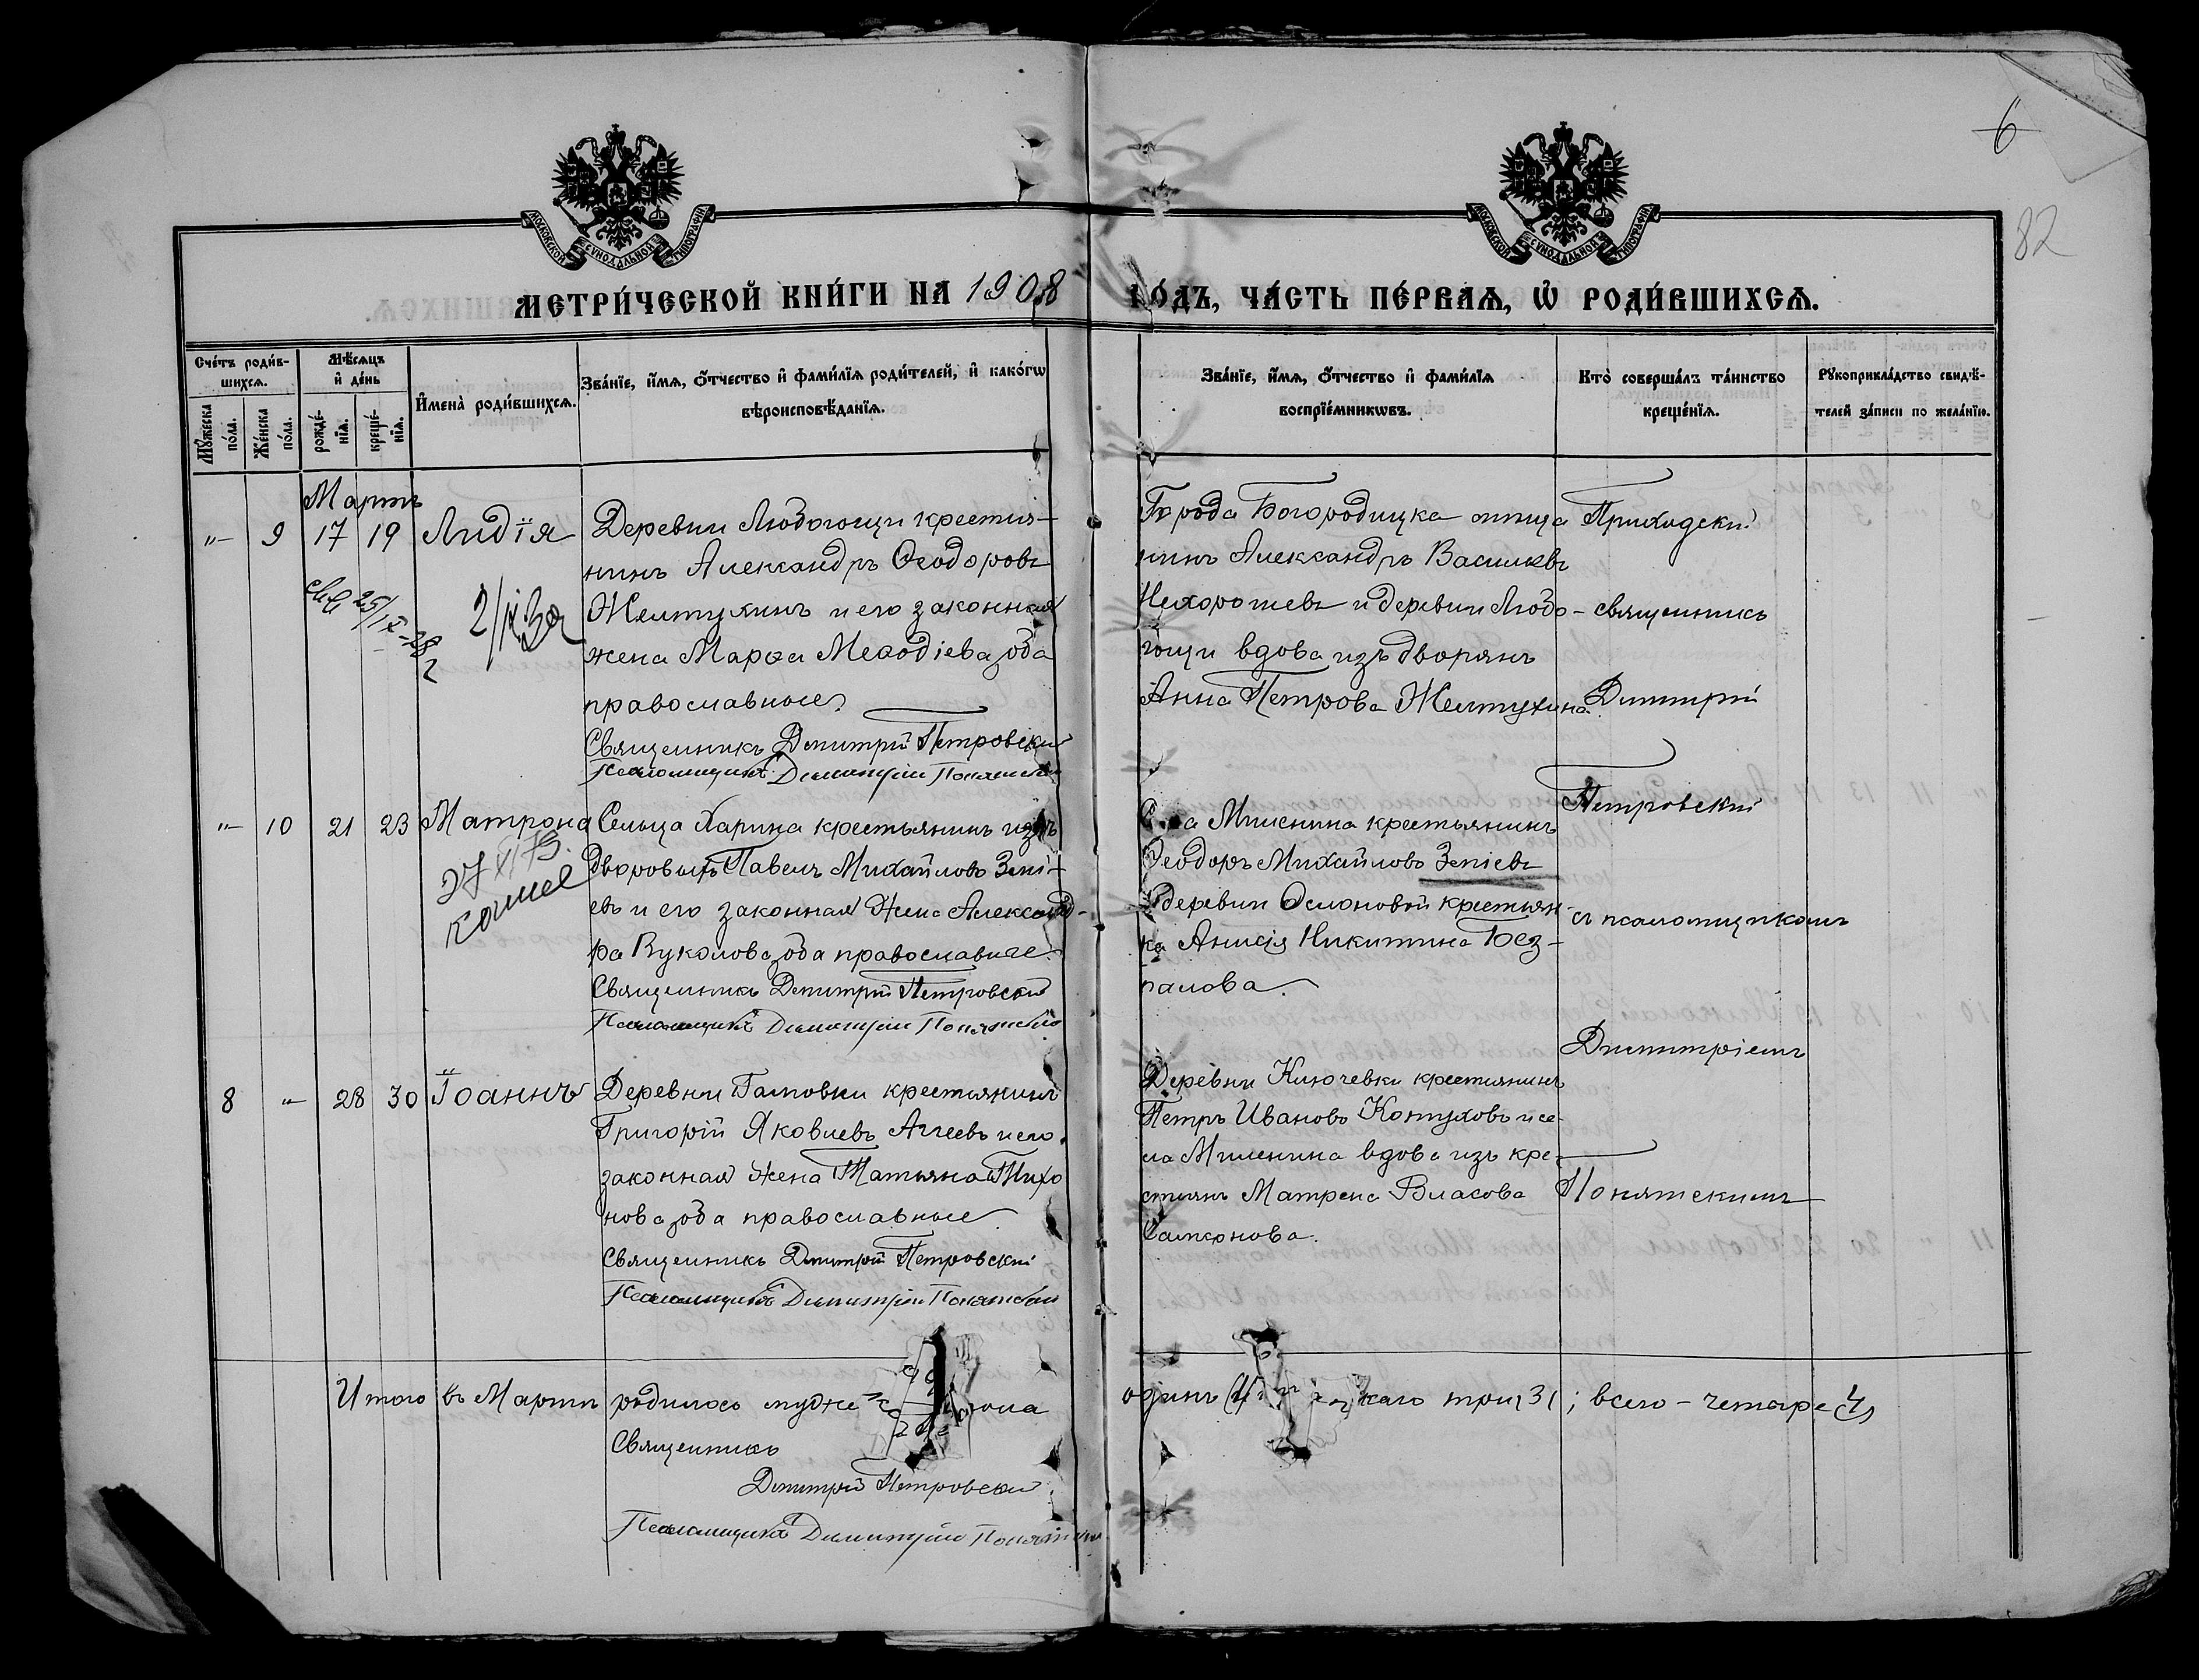 6
82
МОСКОВСКОЙ СѴНОДАЛЬНОЙ ТИПОГРАФІИ
МОСКОВСКОЙ СѴНОДАЛЬНОЙ ТИПОГРАФІИ
МЕТРИ́ЧЕСКОЙ КНИ́ГИ НА 1908 ГО́ДЪ, ЧА́СТЬ ПЕ́РВАѦ, Ѡ҆ РОДИ́ВШИХСѦ.
Сче́тъ роди́в-
шихсѧ.
Мꙋ́жеска по́ла.
Же́нска по́ла.
Мѣ́сѧцъ
и҆ де́нь
рожде́-
нїѧ.
креще́-
нїѧ.
И҆мена̀ роди́вшихсѧ.
Зва́нїе, и҆́мѧ, ѻ҆́тчество и҆ фами́лїѧ роди́телей, и҆ како́гѡ
вѣроисповѣ́данїѧ.
Зва́нїе, и҆́мѧ, ѻ҆́тчество и҆ фами́лїѧ
воспрїе́мникѡвъ.
Кто̀ соверша́лъ та́инство
креще́нїѧ.
Рꙋкоприкла́дство свидѣ́-
телей за́писи по жела́нїю.
Мартъ
"- 9 17 19 Лидія
Деревни Любогощи крестья-
нинъ Александръ Ѳеодоровъ
Желтухинъ и его законная
жена Марѳа Меѳодіева, оба
православные.
Священникъ Димитрій Петровскій
Псаломщикъ Димитрій Понятскій
25/IX-28
Города Богородицка мѣща
нинъ Александръ Васильевъ
Нехорошевъ и деревни Любо-
гощи вдова изъ дворянъ
Анна Петрова Желтухина.
Приходскій
священникъ
Димитрій
Петровскій
съ псаломщикомъ
Димитріемъ
Понятскимъ
"- 10 21 23 Матрона
27 XI
Сельца Харина крестьянинъ изъ
дворовыхъ Павелъ Михайловъ Зепі-
евъ и его законная жена Александ-
ра Вуколова, оба православные.
Священникъ Димитрій Петровскій
Псаломщикъ Димитрій Понятскій
Села Мишенина крестьянинъ
Ѳеодоръ Михайловъ Зепіевъ
деревни Осмоновой крестьян-
ка Анисія Никитина Без-
палова.
8 "- 28 30 Іоаннъ
Деревни Галовки крестьянинъ
Григорій Яковлевъ Агѣевъ и его
законная жена Татьяна Тихо
нова, оба православные.
Священникъ Димитрій Петровскій
Псаломщикъ Димитрій Понятскій
Деревни Ключевки крестьянинъ
Петръ Ивановъ Копуховъ и се-
ла Мишенина вдова изъ кре-
стьянъ Матрена Власова
Самсонова.
Итого въ Мартѣ родилось мужескаго пола
одинъ три (3); всего - четыре (4)
Священникъ
Димитрій Петровскій
Псаломщикъ Димитрій Понятскій